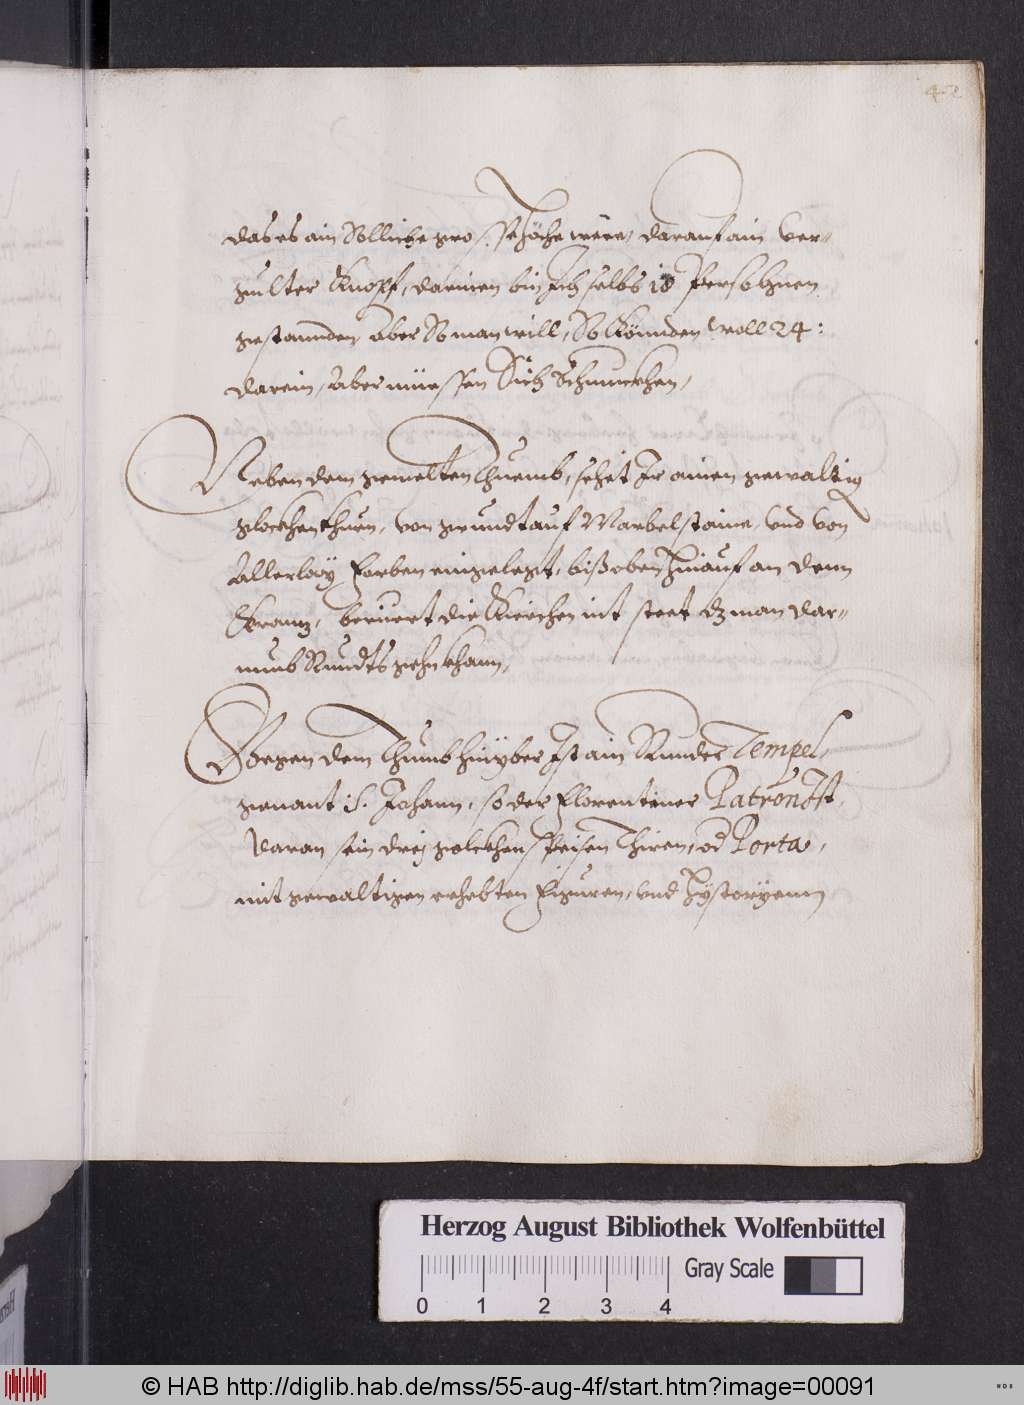 42
das es ain Solliche grosse Höche were, darauf ain ver-
gulter Knopf, darinen bin Ich selbs 18 Persohnen
gestannden, aber So man will, So Könnden woll 24:
darein, Aber müessen Sich Schmuckhen,
Neben dem gemelten Thuemb, sehet Ir ainen gewaltig
glockhenthuen, von grundt auf Marbelstaine, vnd von
Allerlay Farben eingelegt, biß oben hinauf an denn
Cranz, berüert die Kirchen nit steet dz man dar-
umb Rundts gehn khann,
Gegen dem Thumb hinyber Ist ain Runder Tempel,
genant S. Johann, so der Florentiner Patron Ist,
daran sein drej glockhen speisen Thiren, od Porta,
mit gewaltigen erhebten Figuren, vnd Hystoryenn
Herzog August Bibliothek Wolfenbüttel
Gray Scale
0 1 2 3 4
© HAB http://diglib.hab.de/mss/55-aug-4f/start.htm?image=00091